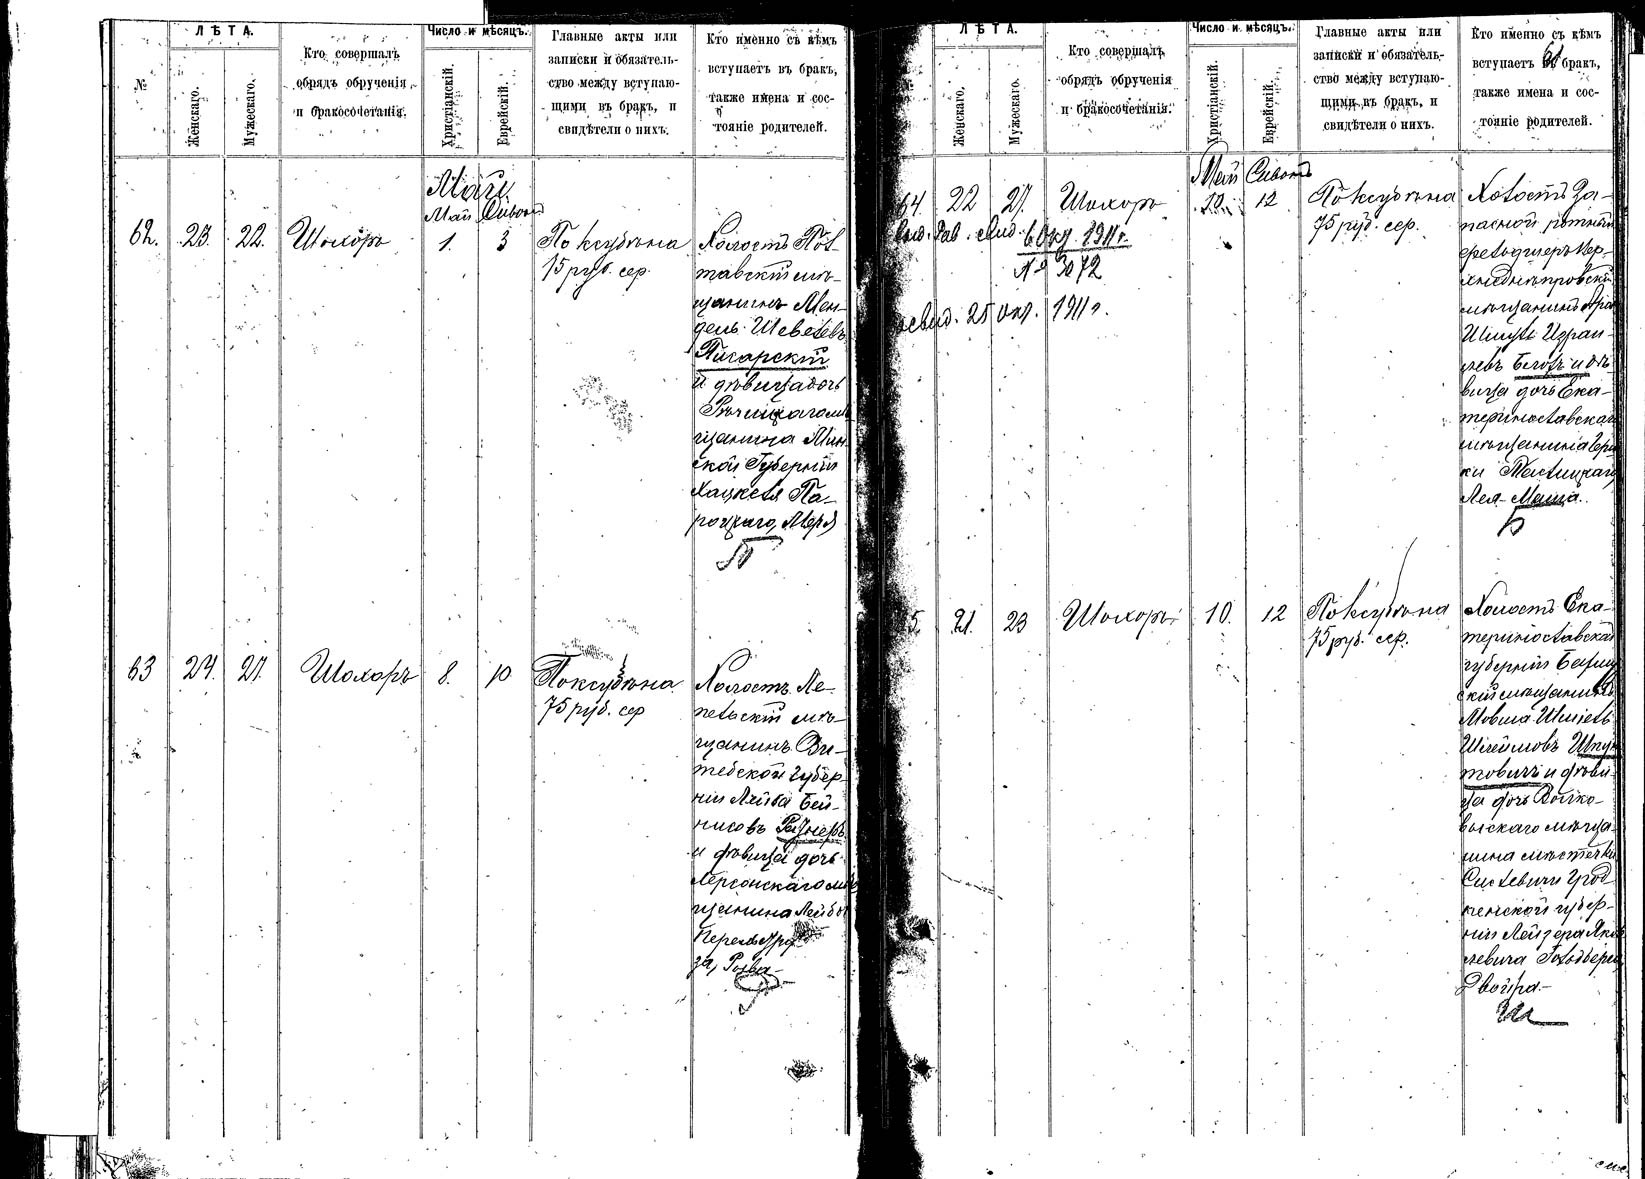 №
ЛѢТА.
Женскаго.
Мужескаго.
Кто совершалъ
обрядъ обрученія
и бракосочетанія.
Число и мѣсяцъ.
Христіанскій.
Еврейскій.
Главные акты или
записки и обязатель-
ство между вступаю-
щими въ бракъ, и
свидѣтели о нихъ.
Кто именно съ кѣмъ
вступаетъ въ бракъ,
также имена и сос-
тояніе родителей.
Май
Май Сивонъ
62. 23. 22. Шохоръ 1. 3
По ксубѣна
75 руб. сер.
Холостъ Пол-
тавскій мѣ-
щанинъ Мен-
дель Шевелевъ
Пигарскій
и дѣвица дочь
Рѣчицкаго мѣ-
щанина Мин-
ской Губерніи
Хацкеля Па-
роцкаго, Меря
П
63 24. 27. Шохоръ 8. 10
По ксубѣна
75 руб. сер
Холостъ Ле-
пельскій мѣ-
щанинъ Ви-
тебской губер-
ніи Лейба Бей-
нисовъ Рознеръ
и дѣвица дочь
Херсонскаго мѣ-
щанина Лейбы
за, Ройва
ЛѢТА.
Женскаго.
Мужескаго.
Кто совершалъ
обрядъ обрученія
и бракосочетанія.
Число и мѣсяцъ.
Христіанскій.
Еврейскій.
Главные акты или
записки и обязатель-
ство между вступаю-
щими въ бракъ, и
свидѣтели о нихъ.
Кто именно съ кѣмъ
61
вступаетъ въ бракъ,
также имена и сос-
тояніе родителей.
Май Сивонъ
64. 22 27. Шохоръ 10. 12
6 Окт. 1911 г.
№ 3072
25 окт. 1911 г.
По ксубѣна
75 руб. сер.
Холостъ За-
пасной ротный
фельдшеръ Вер-
хнеднѣпровскій
мѣщанинъ
Шмуль Израи-
левъ Белозъ и дѣ-
вица дочь Ека-
теринославскаго
мѣщанина
Лея-Маша.
Б
65. 21. 23 Шохоръ 10. 12
По ксубѣна
75 руб. сер.
Холостъ Ека-
теринославской
губерніи
скій мѣщанинъ
Мовша-Шмуель
Шлеймовъ Шпун-
товичъ и дѣви-
ца дочь Волко-
выскаго мѣща-
нина мѣстечка
Сислевичи Грод-
ненской губер-
ніи Лейзера Янке-
левича Гольдберга
Двойра.-
Ш